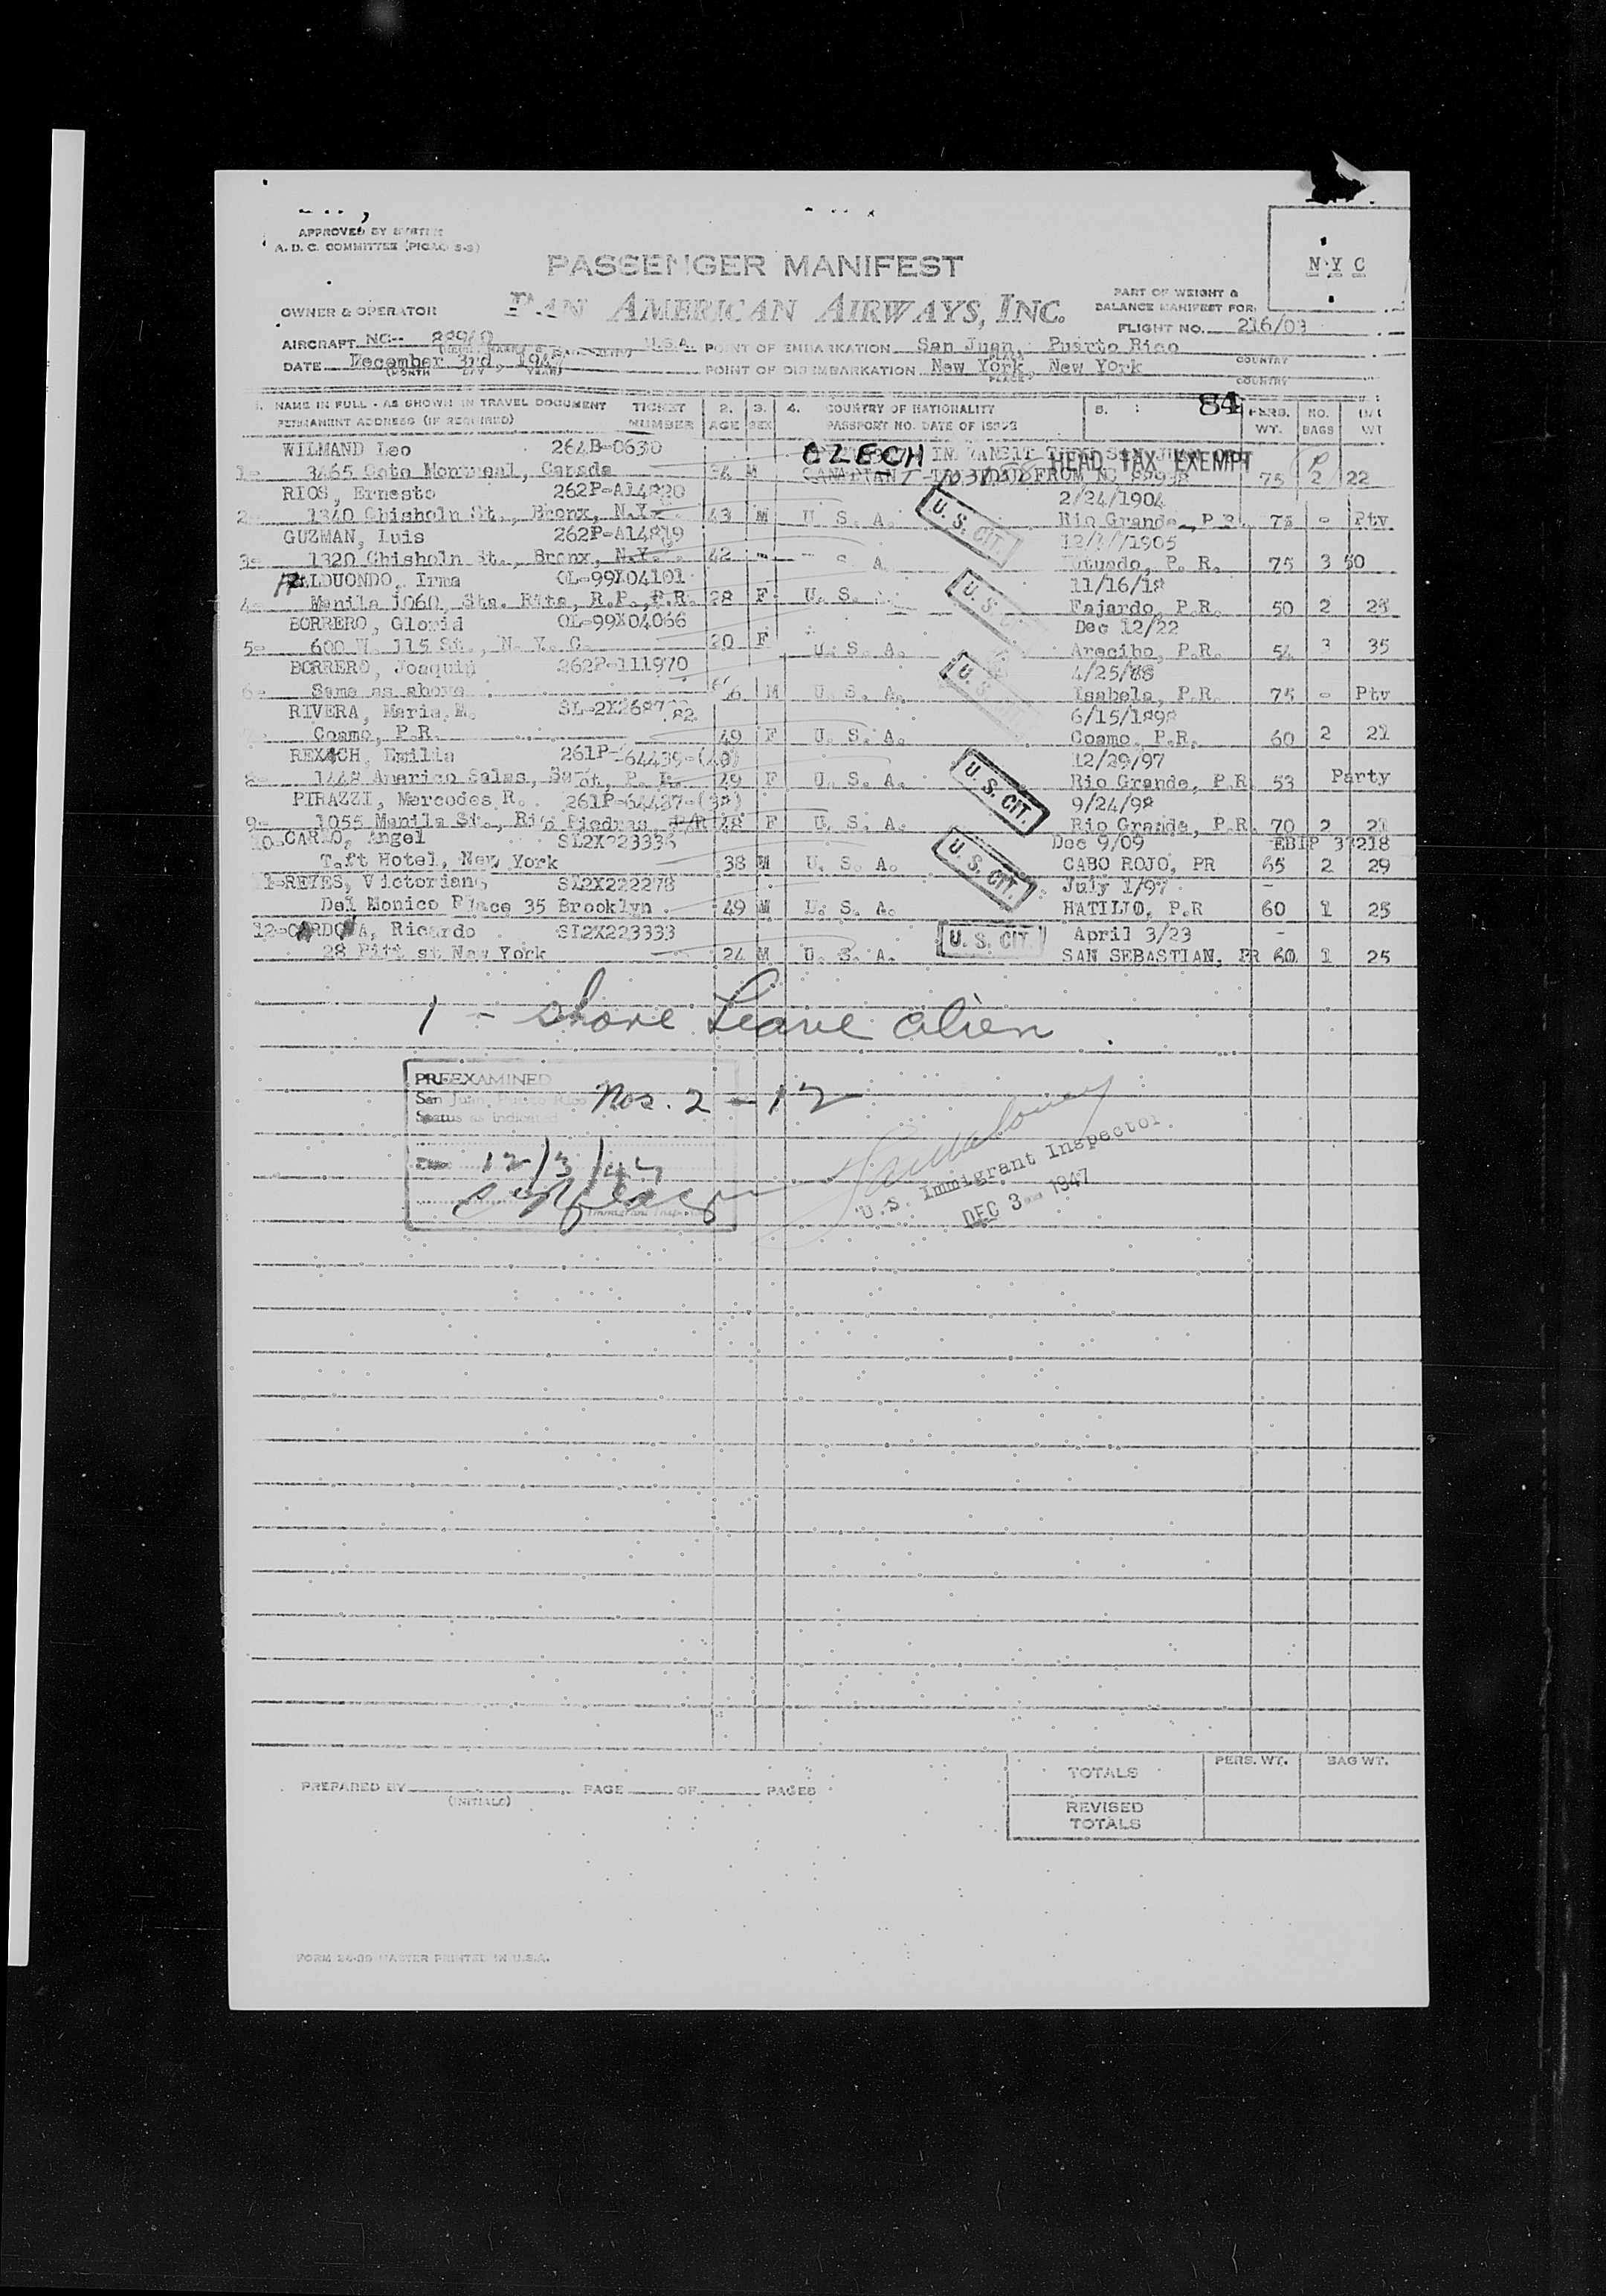 APPROVED BY SYSTEM
A. D. C. COMMITTEE (PICAO S-3)
PASSENGER MANIFEST
N Y C
PAN AMERICAN AIRWAYS, INC.
PART OF WEIGHT &
BALANCE MANIFEST FOR:
OWNER & OPERATOR
FLIGHT NO. 216/03
AIRCRAFT NC- U.S.A. POINT OF EMBARKATION San Juan, Puerto Rico
PLACE COUNTRY
DATE December 3rd, POINT OF DISEMBARKATION New York, New York
(MONTH DAY YEAR) PLACE COUNTRY
1. NAME IN FULL - AS SHOWN IN TRAVEL DOCUMENT TICKET 2. 3. 4. COUNTRY OF NATIONALITY 5. 84 PERS. NO.
PERMANENT ADDRESS (IF REQUIRED) NUMBER AGE SEX PASSPORT NO. DATE OF ISSUE WT. BAGS WT
WILMAND Leo 264B-0630 CZECH IN TRANSIT HEAD TAX EXEMPT
1- 3465 Cote Montreal, Canada 34 M CANADIAN FROM NC 75 2 22
RIOS, Ernesto 262P-A14820 2/24/1904
2- 1340 Chisholm St., Bronx, N.Y. 43 M U. S. A. U. S. CIT. Rio Grande, P.R. 75 - Ptv
GUZMAN, Luis 262P-A14819
3- 1320 Chisholm St., Bronx, N.Y. 42 S. A. Utuado, P. R. 75 3 50
ALDUONDO, Irma OL-99X04101 11/16/18
4- Manila 1060, Sta. Rita, R.P., P.R. 28 F U. S. U. S. Fajardo, P.R. 50 2 25
BORRERO, Gloria OL-99X04066 Dec 12/22
5- 600 W. 115 St., N. Y. C. 20 F U. S. A. Arecibo, P.R. 54 3 35
BORRERO, Joaquin 262P-111970 4/25/88
6- Same as above M U. S. A. U. S. Isabela, P.R. 75 - Ptv
RIVERA, Maria M. 82 6/15/1898
Coamo, P.R. 49 F U. S. A. Coamo, P.R. 60 2 21
REXACH, Emilia 261P-64439-(40) 12/29/97
8- 1448 Americo Salas, Sant, P. R. 49 F U. S. A. U. S. CIT. Rio Grande, P.R 53 Party
PIRAZZI, Mercedes R. 261P-64437-(38) 9/24/98
9- 1055 Manila St., Rio Piedras, P/R 48 F U. S. A. Rio Grande, P.R. 70 2 21
10-CARLO, Angel SL2X223336 Dec 9/09 EBIP 37218
Taft Hotel, New York 38 M U. S. A. U. S. CIT. CABO ROJO, PR 65 2 29
11-REYES, Victoriano SL2X222278 July 1/97 -
Del Monico Place 35 Brooklyn 49 M U. S. A. HATILLO, P.R 60 1 25
12-CARDOVA, Ricardo SL2X223333 April 3/23 -
28 Pitt st New York 24 M U. S. A. U. S. CIT. SAN SEBASTIAN, PR 60 1 25
1 - Shore Leave alien
PREEXAMINED
San Juan, Puerto Rico Nos. 2 - 12
Status as indicated
12/3/47
Immigrant Inspector
U. S. Immigrant Inspector
DEC 3 1947
PREPARED BY PAGE OF PAGES
(INITIALS)
TOTALS PERS. WT. BAG WT.
REVISED
TOTALS
FORM 26-39 MASTER PRINTED IN U.S.A.